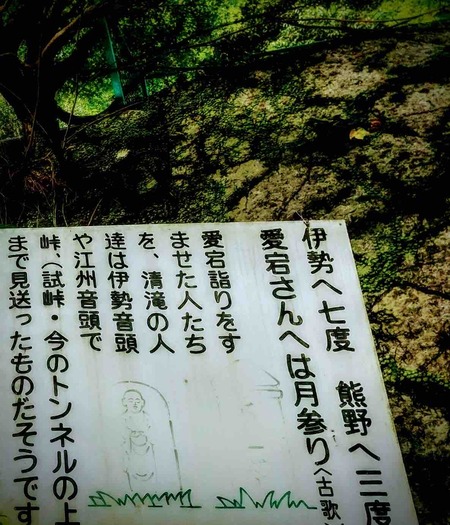 伊勢へ七度　熊野へ三度
愛宕さんへは月参り（古歌）
愛宕詣りをす
ませた人たち
を、清滝の人
達は伊勢音頭
や江州音頭で
峠、（試峠・今のトンネルの上
まで見送ったものだそうです